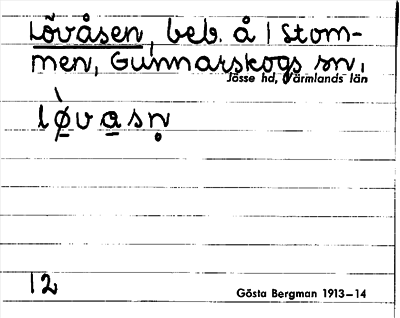 Lövåsen, beb. å 1 Stom-
men, Gunnarskogs sn,
Jösse hd, Värmlands län
lø̱̀va̱sn̥
12
Gösta Bergman 1913–14